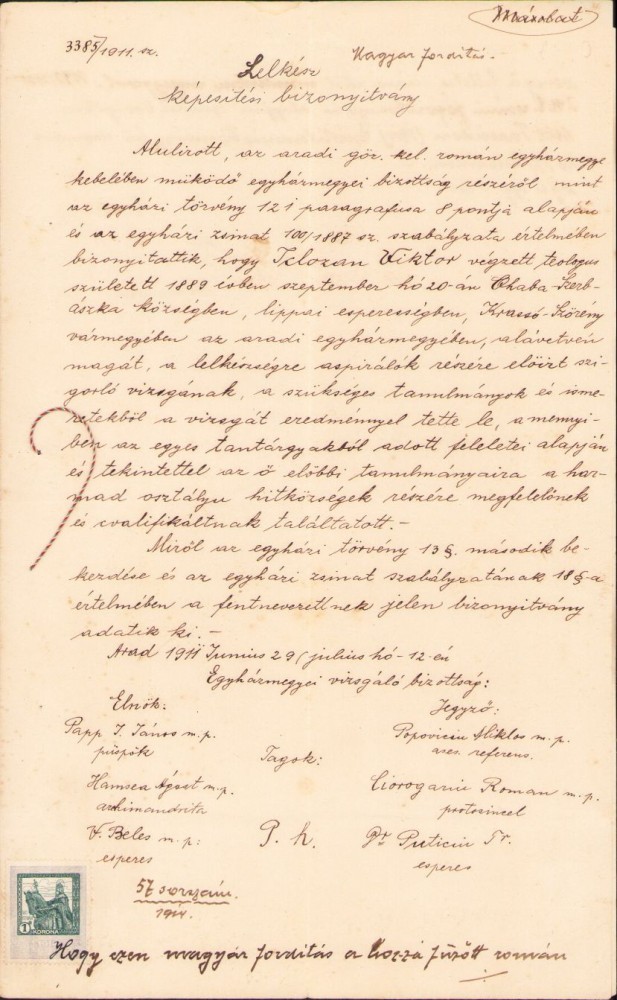 Másolat
3385/1911. sz.
Magyar fordítás.-
Lelkész
képesítési bizonyítvány
Alulirott, az aradi gör. kel. román egyházmegye
kebelében müködő egyházmegyei bizottság részéről mint
az egyházi törvény 121 paragrafusa 8 pontja alapján
és az egyházi zsinat 100/1887 sz. szabályzata értelmében
bizonyittatik, hogy Viktor végzett teologus
született 1889 évben szeptember hó 20-án Chaba-Szerb-
ászka községben, lippai esperességben, Krassó-Szörény
vármegyében az aradi egyházmegyében, alávetvén
magát, a lelkészségre aspirálók részére előirt szi-
gorló vizsgának, a szükséges tanulmányok és isme-
retekből a vizsgát eredménnyel tette le, a mennyi-
ben az egyes tantárgyakból adott feleletei alapján
és tekintettel az ő előbbi tanulmányaira a har-
mad osztályu hitközségek részére megfelelőnek
és cvalifikáltnak találtatott.-
Miről az egyházi törvény 13 §. második be-
kezdése és az egyházi zsinat szabályzatának 18 §-a
értelmében a fentnevezettnek jelen bizonyitvány
adatik ki.-
Arad 1911 Junius 29/július hó-12-én
Egyházmegyei vizsgáló bizottság:
Elnök:
Jegyző:
Papp J. János m. p.
püspök
Popoviciu Miklos m. p.
ases. referens.
Tagok:
Hamsea Ágost m. p.
archimandrita
Ciorogariu Roman m. p.
protosincel
V. Beles m. p:
esperes
P. h.
Dr Puticiu Tr.
esperes
57 sorszám.
1914.
1 KORONA
Hogy ezen magyar fordítás a hozzá füzött román